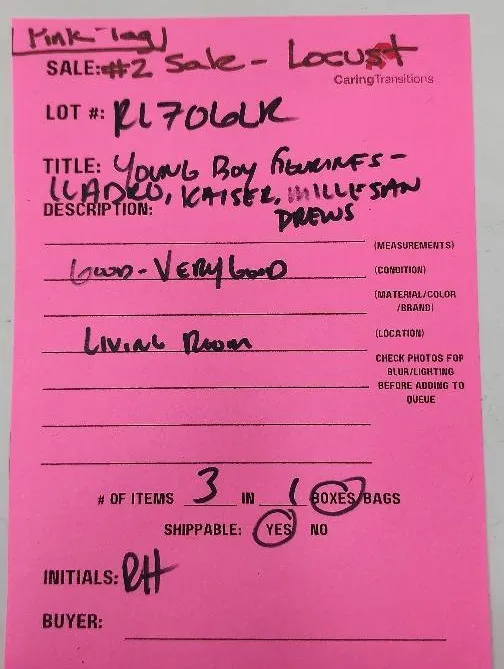 Pink Tag
SALE: #2 Sale - Locust
CaringTransitions
LOT #: RL706LR
TITLE: YOUNG BOY FIGURINES -
LLADRO, KAISER, MILLESAN
DESCRIPTION: DREWS
(MEASUREMENTS)
GOOD - VERY GOOD (CONDITION)
(MATERIAL/COLOR
/BRAND)
LIVING ROOM (LOCATION)
CHECK PHOTOS FOR
BLUR/LIGHTING
BEFORE ADDING TO
QUEUE
# OF ITEMS 3 IN 1 BOXES/BAGS
SHIPPABLE: YES NO
INITIALS: RH
BUYER: